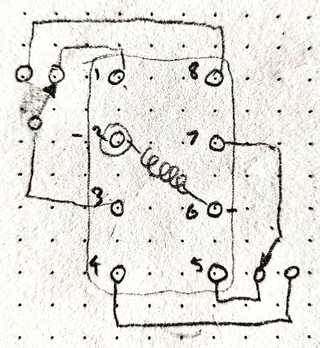 1 8
2 7
3 6
4 5